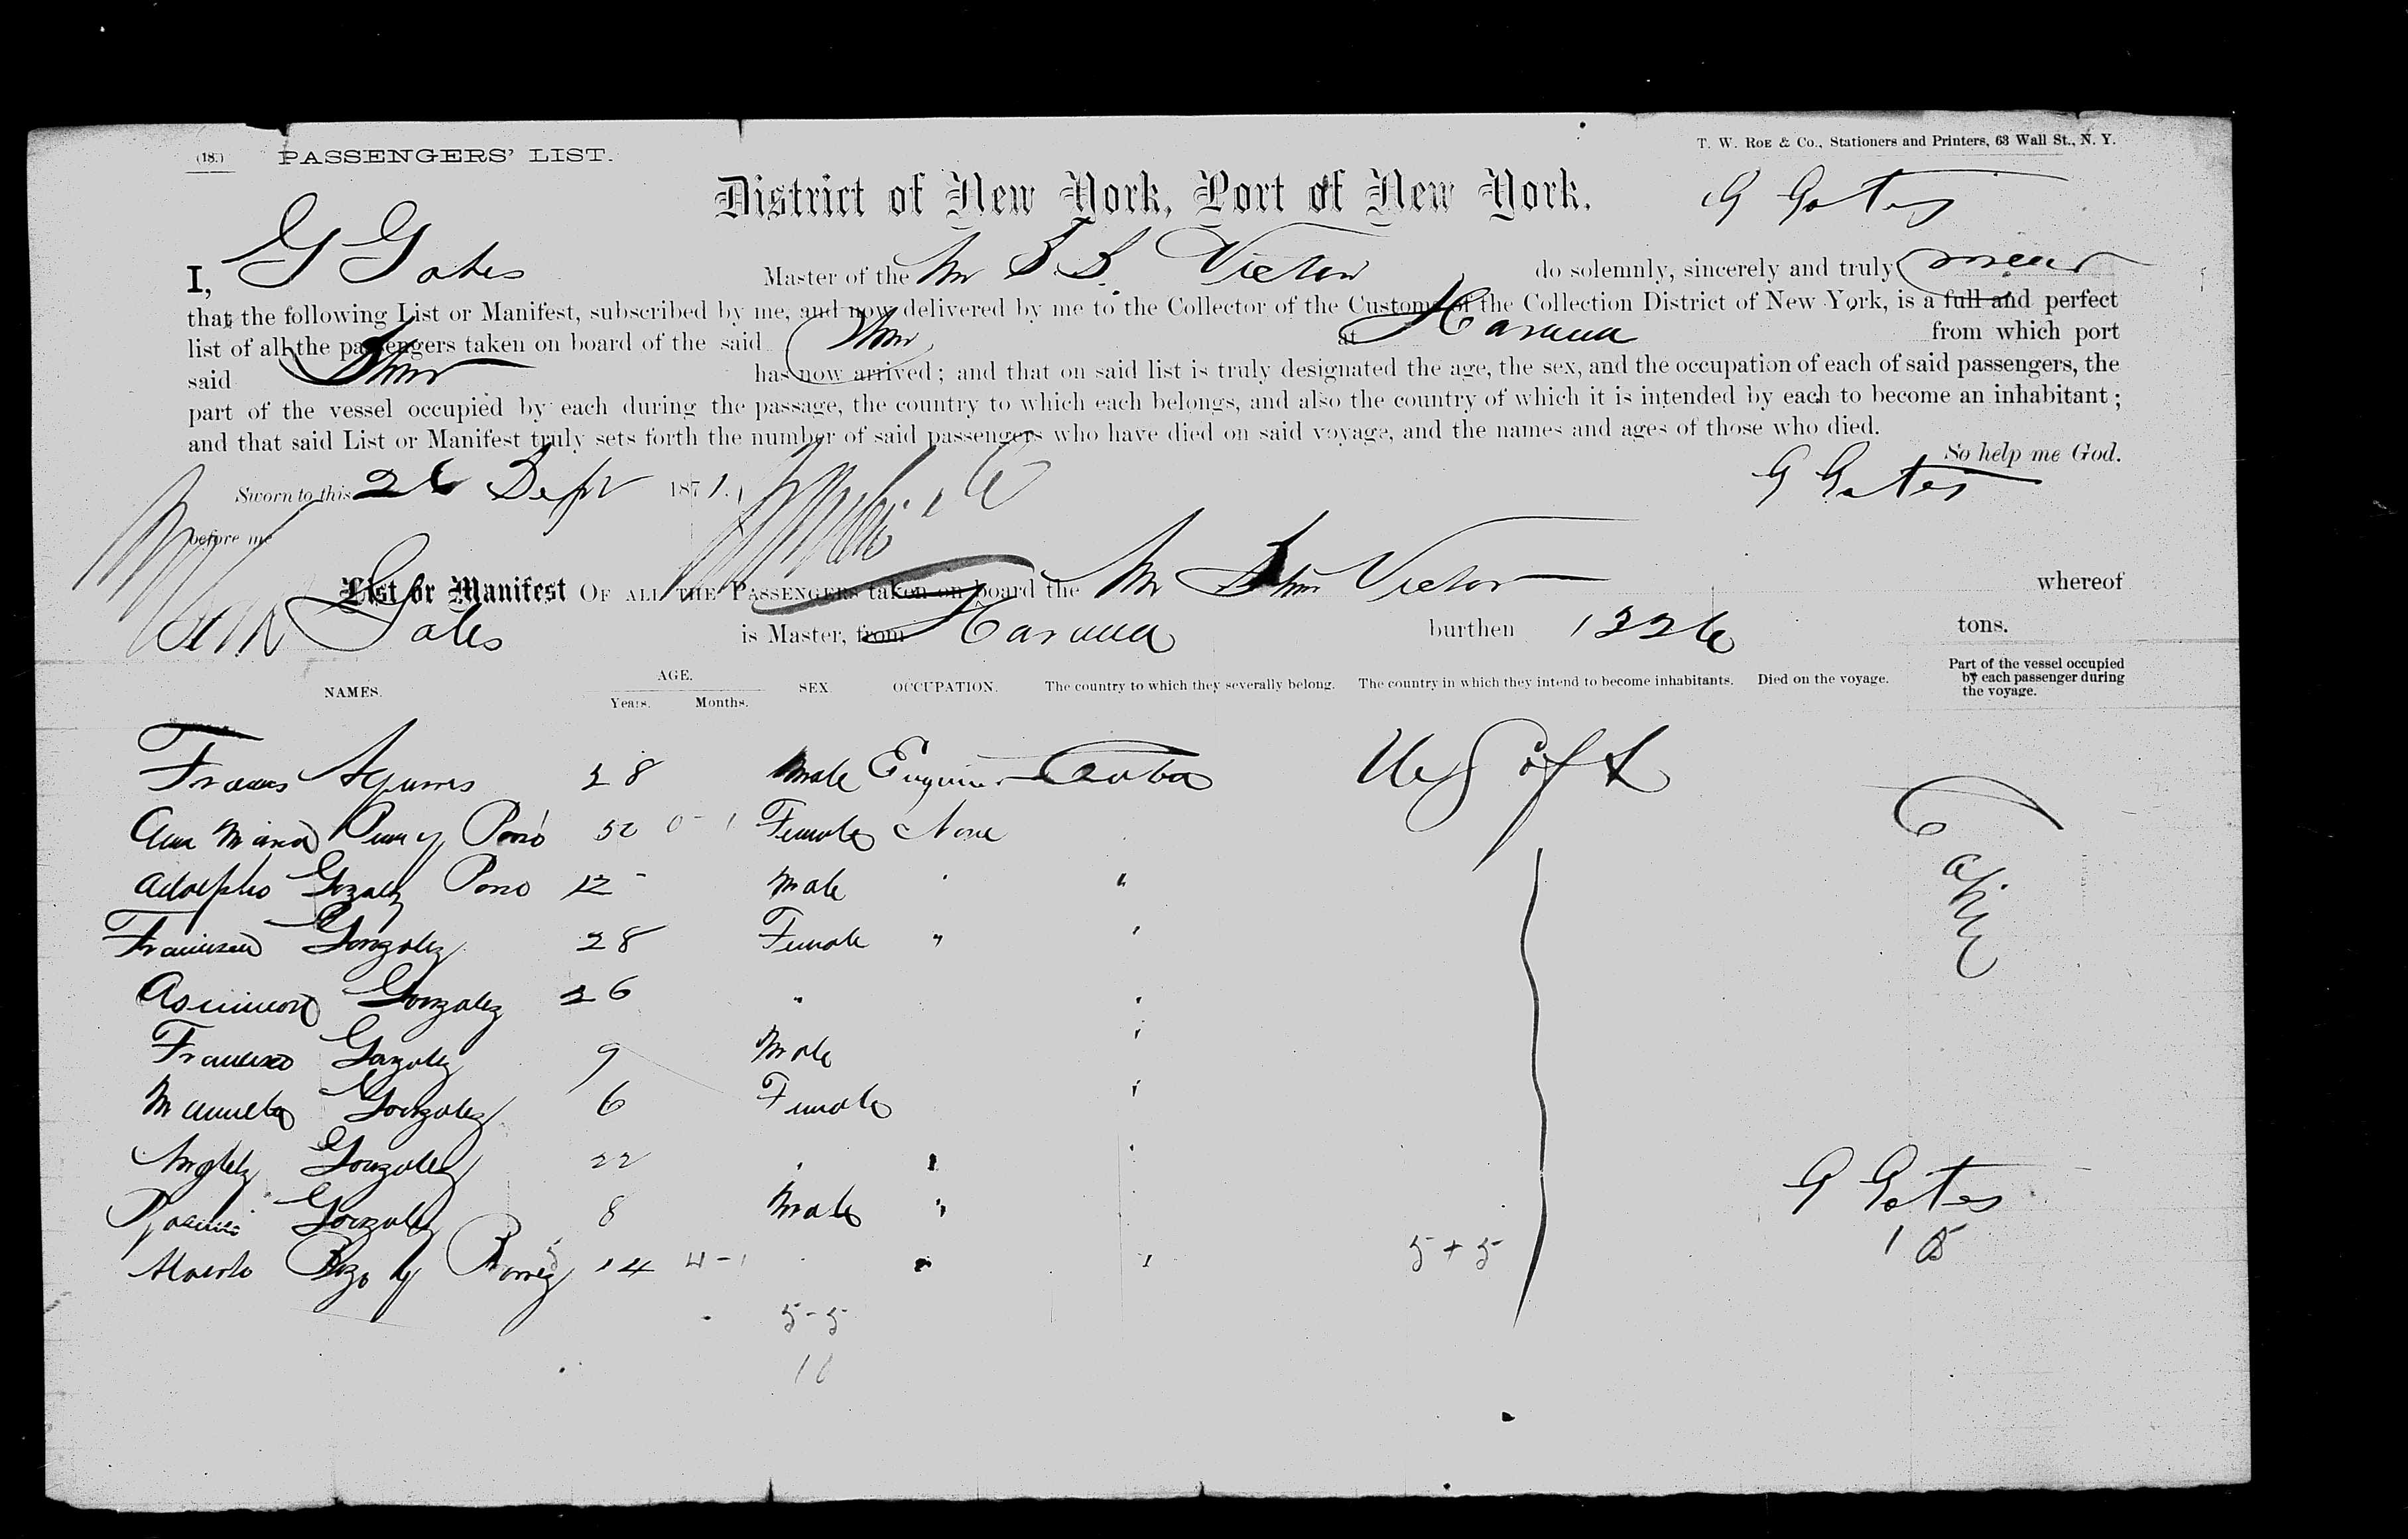 (18.) PASSENGERS' LIST.
T. W. ROE & Co., Stationers and Printers, 63 Wall St., N. Y.
District of New York, Port of New York.
G Gates
I, G Gates Master of the Am S.S. Victor do solemnly, sincerely and truly swear
that the following List or Manifest, subscribed by me, and now delivered by me to the Collector of the Customs of the Collection District of New York, is a full and perfect
list of all the passengers taken on board of the said Stmr at Havana from which port
said Stmr has now arrived; and that on said list is truly designated the age, the sex, and the occupation of each of said passengers, the
part of the vessel occupied by each during the passage, the country to which each belongs, and also the country of which it is intended by each to become an inhabitant;
and that said List or Manifest truly sets forth the number of said passengers who have died on said voyage, and the names and ages of those who died.
So help me God.
Sworn to this 26 Sept 1871.
G Gates
before me
List or Manifest OF ALL THE PASSENGERS taken on board the Am Stmr Victor whereof
Gates is Master, from Havana burthen 1326 tons.
NAMES. AGE. Years. Months. SEX. OCCUPATION. The country to which they severally belong. The country in which they intend to become inhabitants. Died on the voyage. Part of the vessel occupied by each passenger during the voyage.
28 Male Engineer Cuba U S of A
Ana Maria 50 0-1 Female None
Adolpho Pono 12 - Male " "
Francisca Gonzalez 28 Female " "
Gonzalez 26 " "
Francisco Gonzalez 9 Male "
Manuela Gonzalez 6 Female "
Gonzalez 22 " " "
Gonzalez 8 Male " "
y 14 4-1 " " "
Cabin
G Gates
5+5
5-5
10